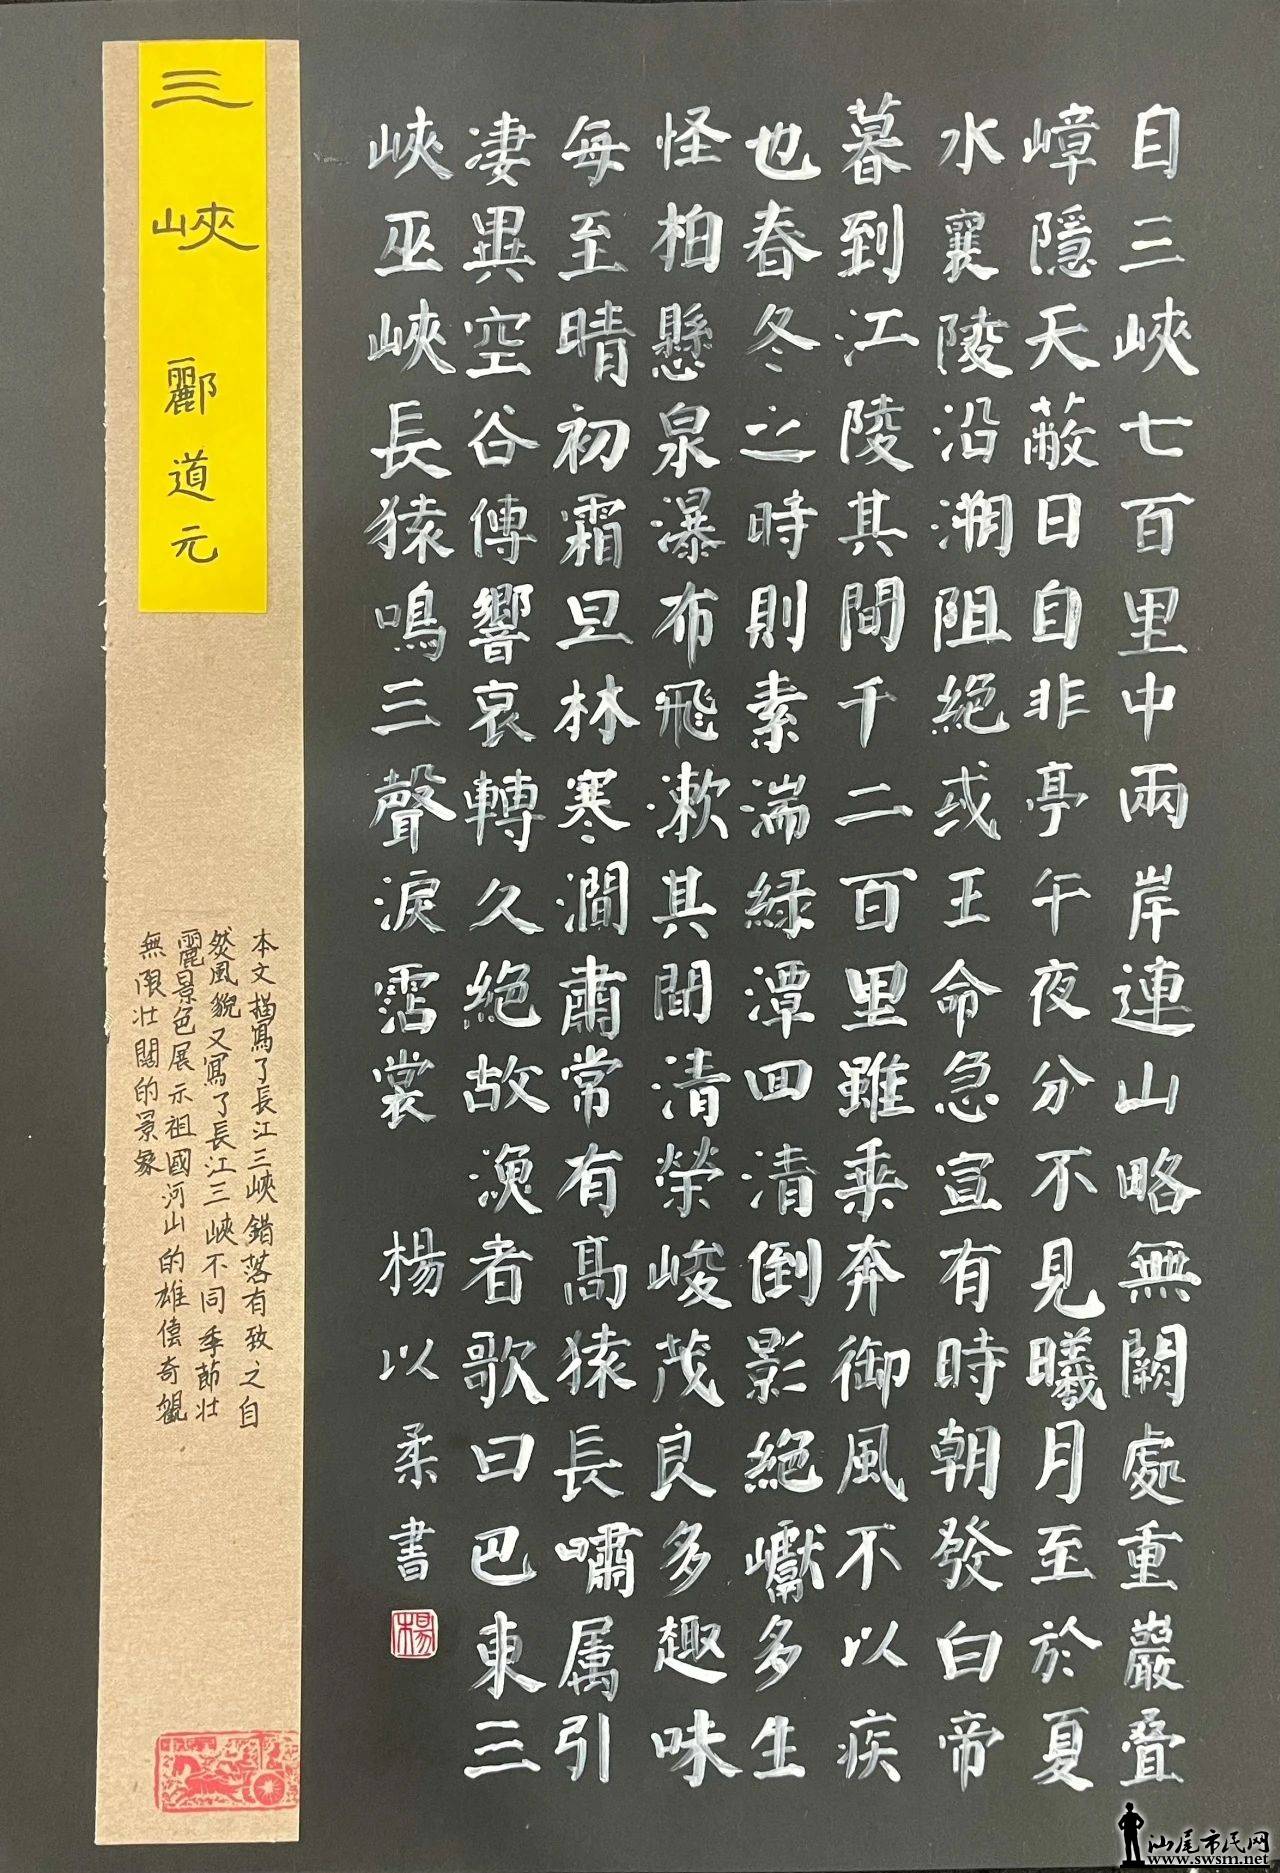 自三峽七百里中兩岸連山略無闕處重巖叠
嶂隱天蔽日自非亭午夜分不見曦月至於夏
水襄陵沿溯阻絕或王命急宣有時朝發白帝
暮到江陵其間千二百里雖乘奔御風不以疾
也春冬之時則素湍緑潭回清倒影絕巘多生
怪柏懸泉瀑布飛漱其間清榮峻茂良多趣味
每至晴初霜旦林寒澗肅常有高猿長嘯属引
凄異空谷傳響哀轉久絕故漁者歌曰巴東三
峽巫峽長猿鳴三聲淚霑裳 楊以柔書
楊
三峽 酈道元
本文描寫了長江三峽錯落有致之自
然風貌又寫了長江三峽不同季節壯
麗景色展示祖國河山的雄偉奇觀
無限壯闊的景象
汕尾市民网
www.swsm.net